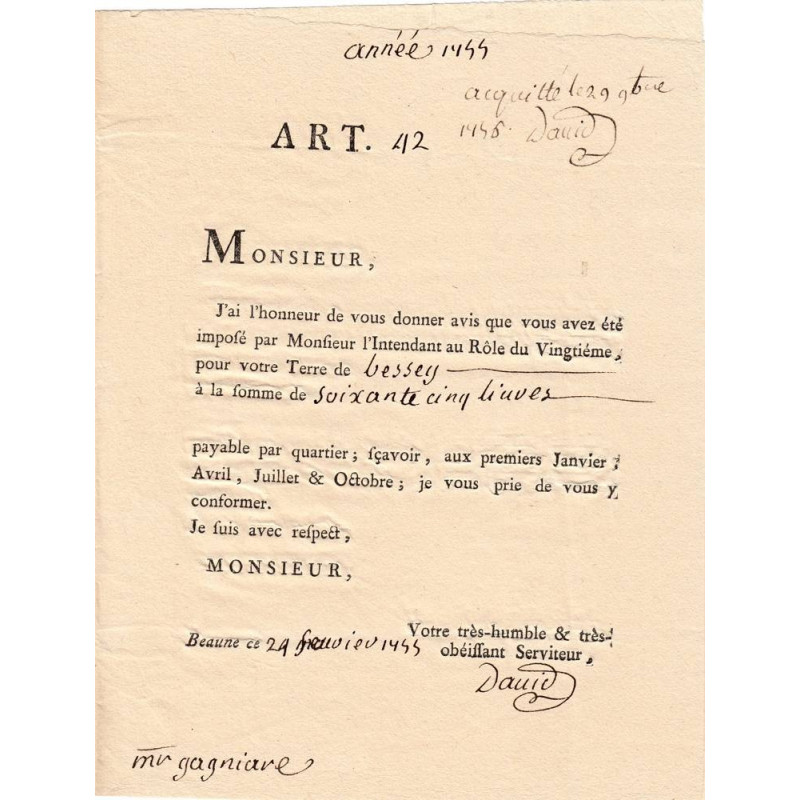 année 1755
acquitté le 29 9bre
1756. David
ART. 42
MONSIEUR,
J'ai l'honneur de vous donner avis que vous avez été
impoſé par Monſieur l'Intendant au Rôle du Vingtiéme,
pour votre Terre de bessey
à la ſomme de soixante cinq liures
payable par quartier; ſçavoir, aux premiers Janvier,
Avril, Juillet & Octobre; je vous prie de vous y
conformer.
Je ſuis avec reſpect,
MONSIEUR,
Votre très-humble & très-
obéiſſant Serviteur,
Beaune ce 24 feuvier 1755
David
mr gagniare